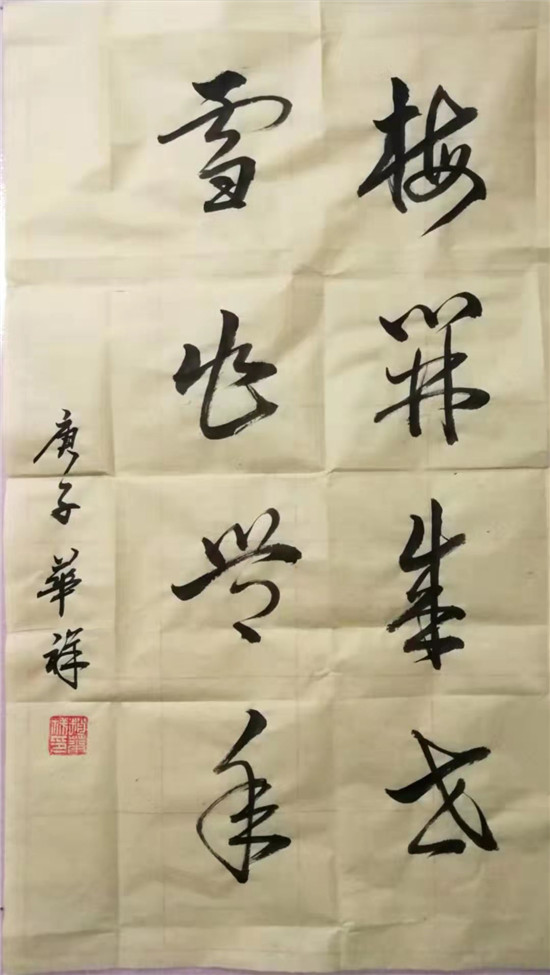 梅開盛世
雪兆豐年
庚子華祥